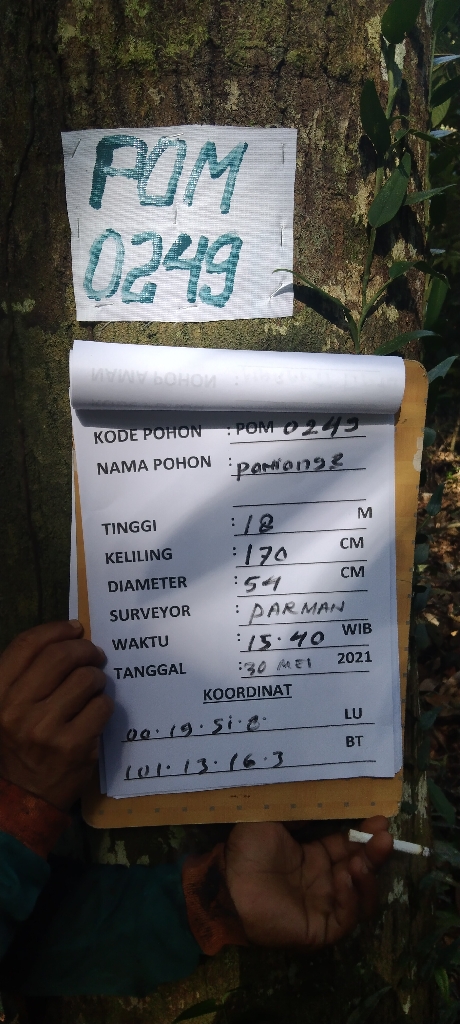 POM
0249
NAMA POHON :
KODE POHON : POM 0249
NAMA POHON :
TINGGI : 18 M
KELILING : 170 CM
DIAMETER : 54 CM
SURVEYOR : PARMAN
WAKTU : 15.40 WIB
TANGGAL : 30 MEI 2021
KOORDINAT
00.19.51.8. LU
101.13.16.3 BT